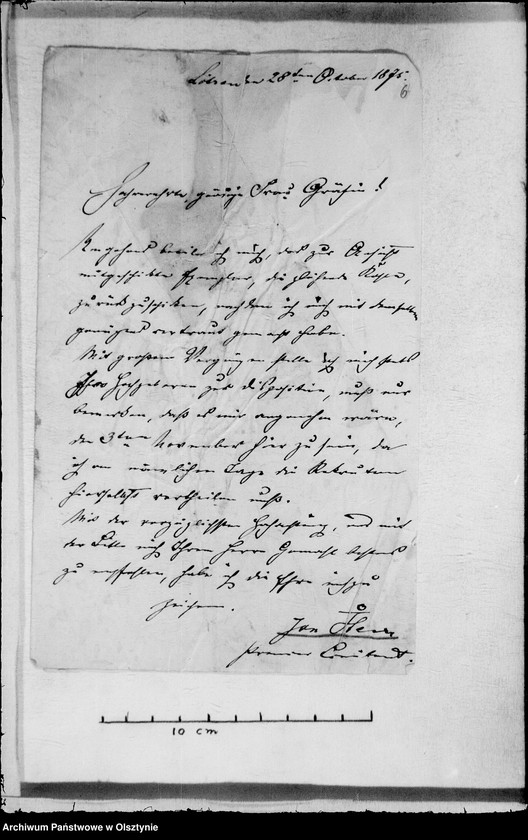 Lötzen den 28ten October 1895.
6
Hochverehrte, gnädige Frau Gräfin!
Umgehend beeile ich mich, das zur Ansicht
mitgeschickte Exemplar, die
zurückzuschicken, nachdem ich mich mit demselben
genügend vertraut gemacht habe.
Mit großem Vergnügen stelle ich mich stets
zur Disposition, muß nur
bemerken, daß es mir angenehm wäre,
den 3ten November hier zu sein, da
ich am nämlichen Tage die Rekruten
hierselbst vertheilen muß.
Mit der vorzüglichsten Hochachtung, und mit
der Bitte mich Ihrem Herrn Gemahl bestens
zu empfehlen, habe ich die Ehre mich zu
zeichnen.
Premier Lieutenant.
10 cm
Archiwum Państwowe w Olsztynie